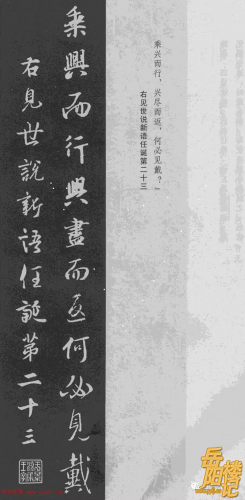 乘興而行興盡而返何必見戴
右見世說新語任誕第二十三
乘兴而行，兴尽而返，何必见戴？
右见世说新语任诞第二十三
岳阳楼记